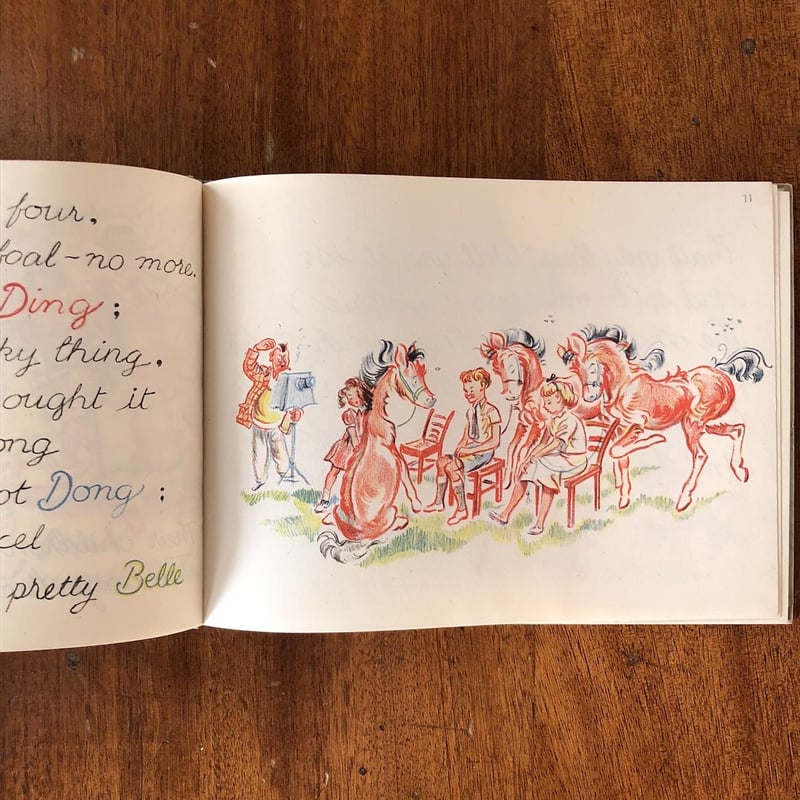 four,
foal – no more.
Ding ;
ky thing,
ought it
ong
ot Dong :
cel
pretty Belle
11